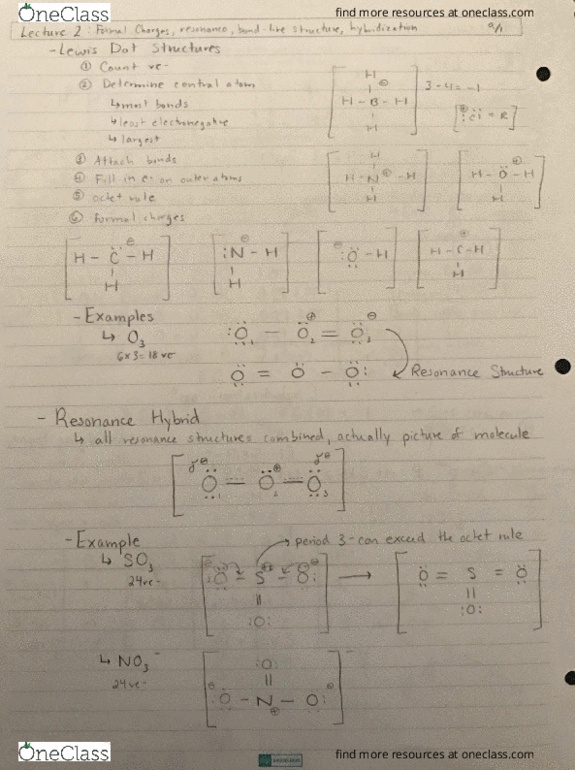 OneClass
find more resources at oneclass.com
Lecture 2: Formal Charges, resonance, bond-line structure, hybridization 9/1
- Lewis Dot Structures
① Count ve-
② Determine central atom
↳ most bonds
↳ least electronegative
↳ largest
③ Attach bonds
④ Fill in e- on outer atoms
⑤ octet rule
⑥ formal charges
H
H - B - H ⊖
H
3-4 = -1
H
H - N⊕ - H
H
H - O - H ⊕
H
H - C - H ⊖
H
:N - H ⊖
H
⊖ :O - H
H - C - H ⊕
H
- Examples
↳ O3
6x3=18 ve
:O1 - O2 = O3 ⊕ ⊖
O = O - O:
Resonance Structure
- Resonance Hybrid
↳ all resonance structures combined, actually picture of molecule
δ⊖ ⊕ δ⊖
O1 = O2 = O3
- Example
period 3 - can exceed the octet rule
↳ SO3
24ve-
:O - S - O:
||
:O:
O = S = O
||
:O:
↳ NO3-
24ve-
:O:
||
⊖ :O - N - O: ⊖
⊕
OneClass
find more resources at oneclass.com